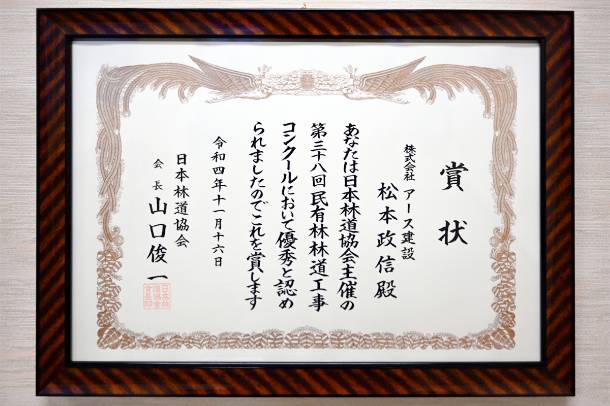 賞状
株式会社 アース建設
松本政信殿
あなたは日本林道協会主催の
第三十八回民有林林道工事
コンクールにおいて優秀と認め
られましたのでこれを賞します
令和四年十一月十六日
日本林道協会
会長 山口俊一